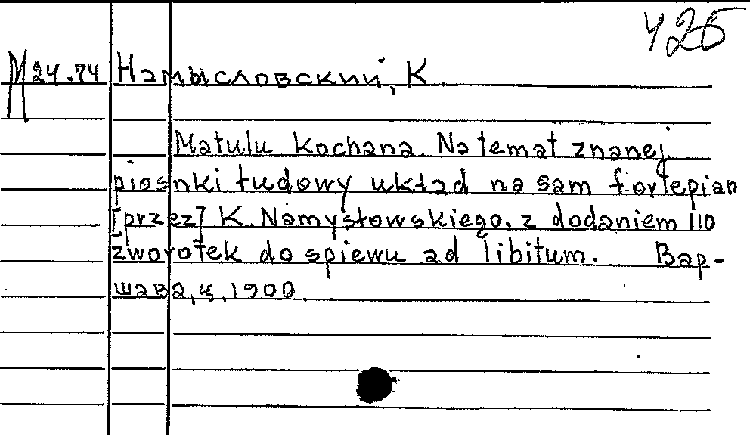 425
М 24.74 Намысловский, К.
Matulu kochana. Na temat znanej
piosnki ludowy układ na sam fortepian
[przez] K. Namysłowskiego, z dodaniem 110
zwrotek do spiewu ad libitum. Вар-
шава, ц. 1900.